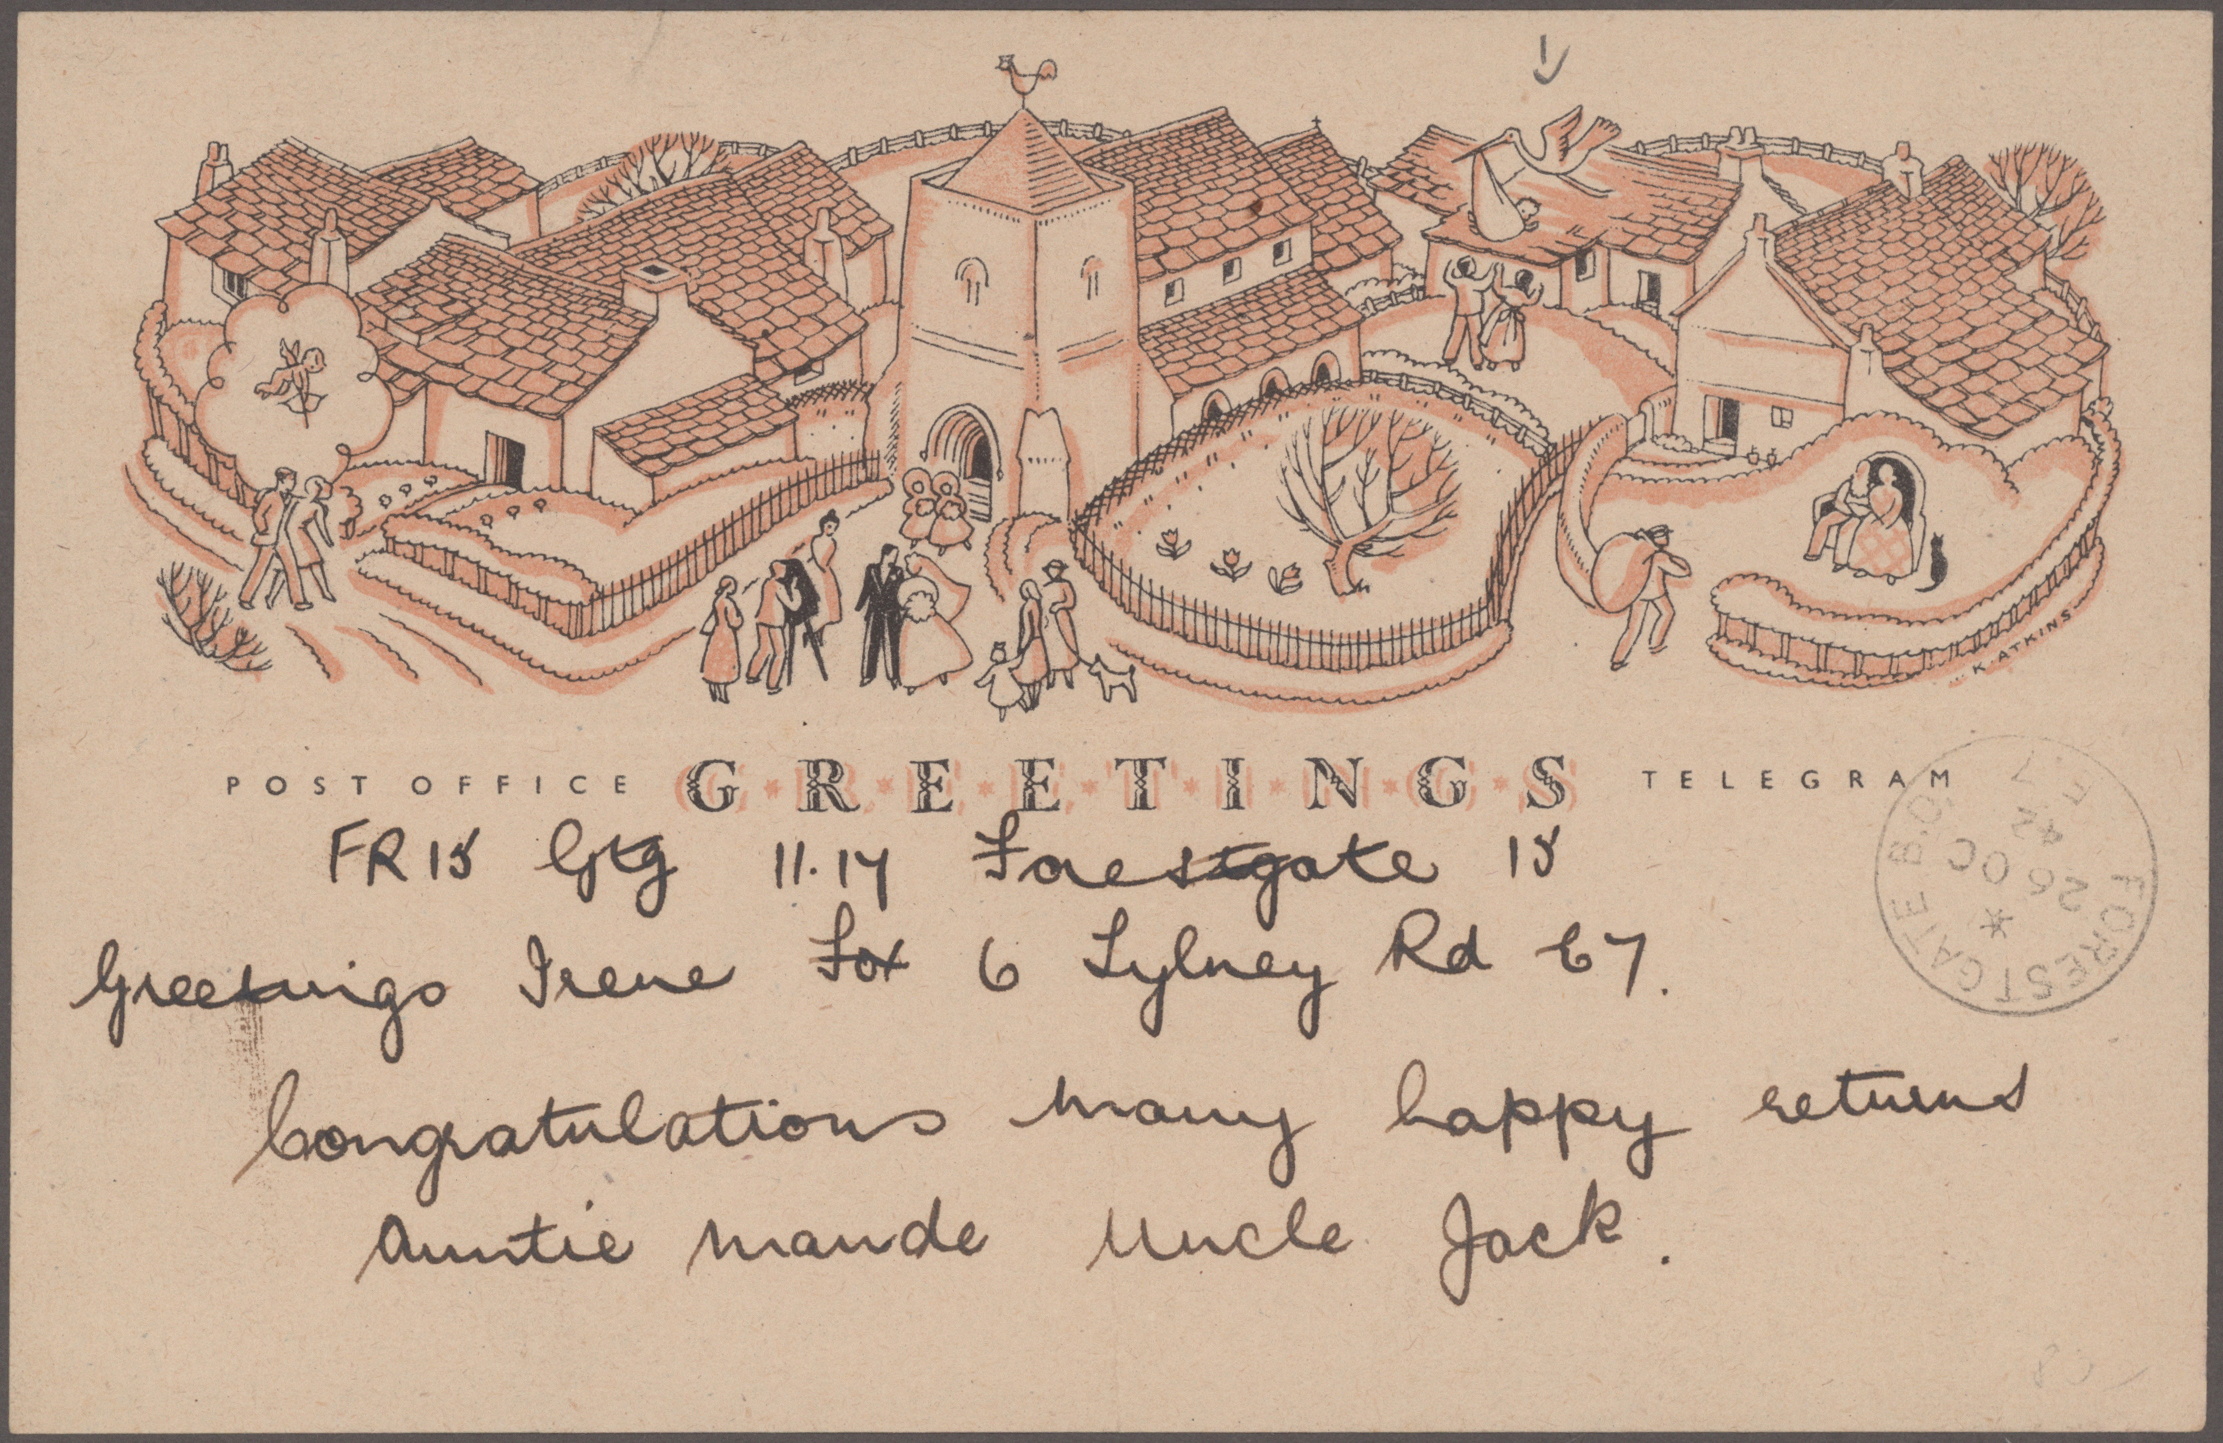 K. ATKINS
POST OFFICE GREETINGS TELEGRAM
FR 15 Gtg 11.14 Forestgate 15
Greetings Irene Fox 6 Lylney Rd E7.
Congratulations many happy returns
Auntie Maude Uncle Jack.
FORESTGATE B.O.
E.7
26 OC
42